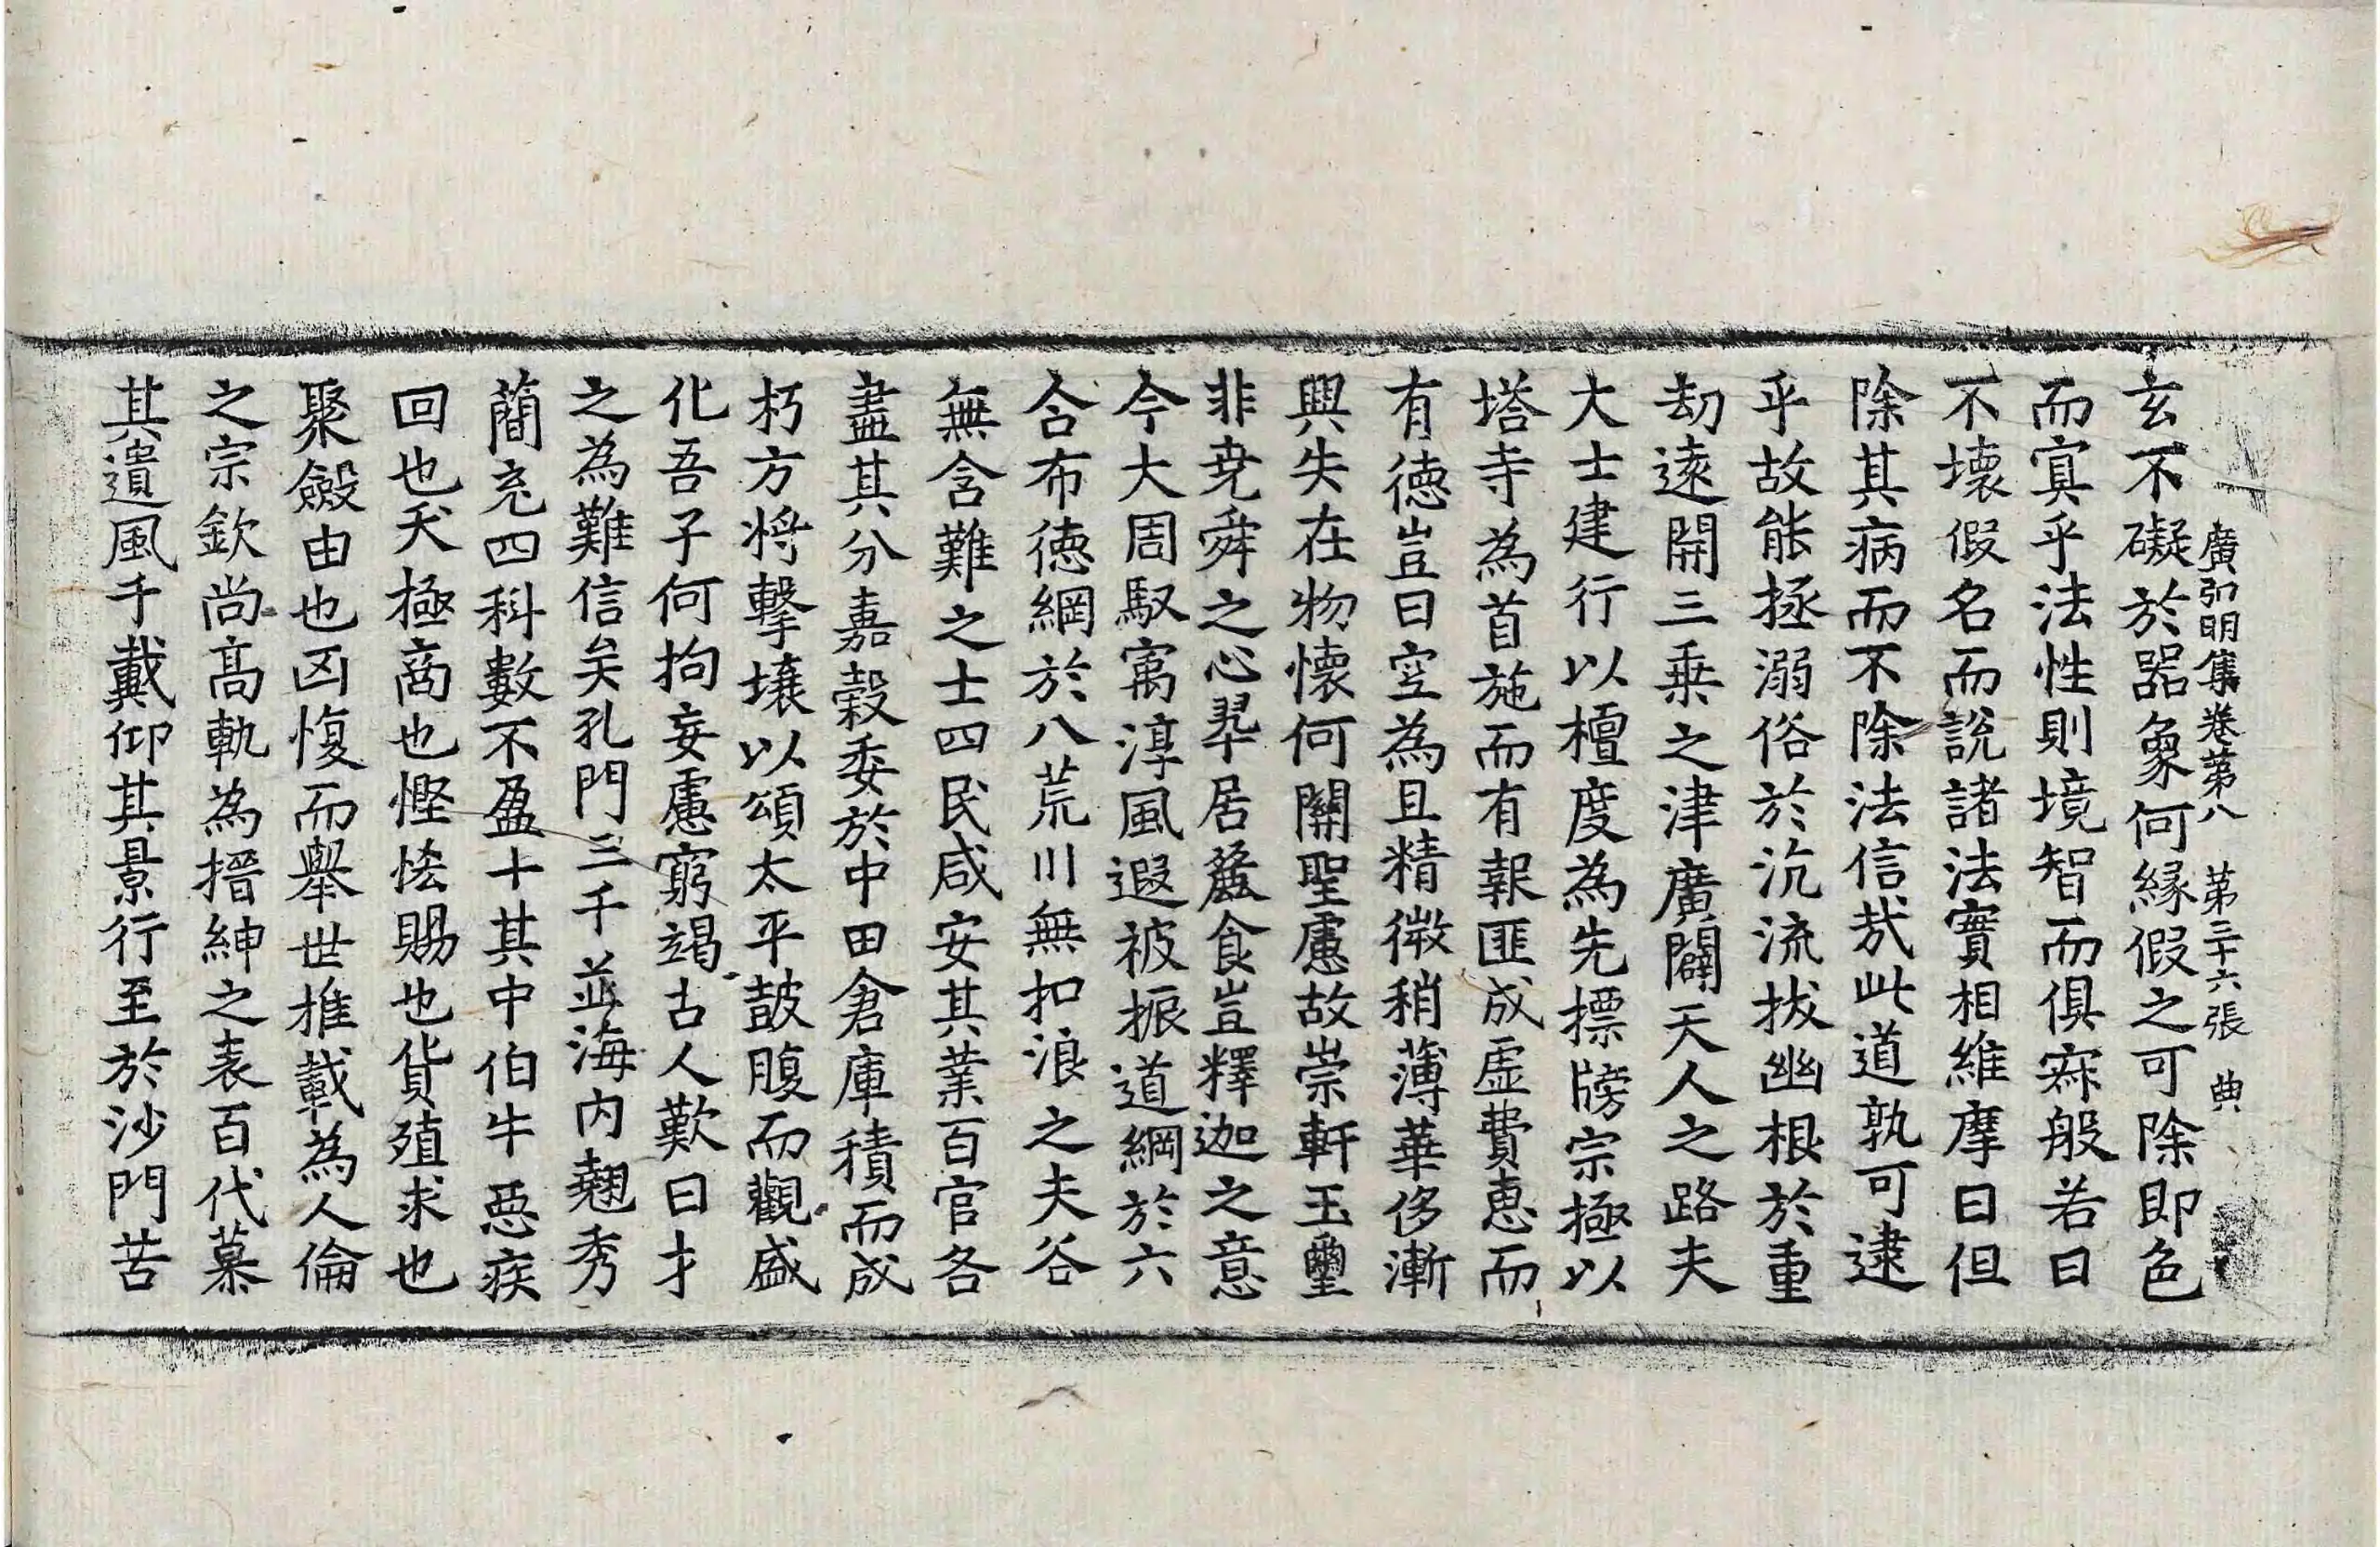 廣弘明集卷第八 第三十六張 典
玄不礙於器象何緣假之可除即色
而寞乎法性則境智而俱寂般若曰
不壞假名而說諸法實相維摩曰但
除其病而不除法信哉此道孰可逮
乎故能拯溺俗於沉流拔幽根於重
劫遠開三乘之津廣闢天人之路夫
大士建行以檀度為先摽牓宗極以
塔寺為首施而有報匪成虛費惠而
有德豈曰空為且精微稍薄華侈漸
興失在物懷何關聖慮故崇軒玉璽
非尭舜之心翆居麄食豈釋迦之意
今大周馭㝢淳風遐被振道綱於六
合布德網於八荒川無扣浪之夫谷
無含難之士四民咸安其業百官各
盡其分嘉穀委於中田倉庫積而成
朽方將擊壤以頌太平鼓腹而觀盛
化吾子何拘妄慮窮竭古人歎曰才
之為難信矣孔門三千並海内翹秀
蕳充四科數不盈十其中伯牛惡疾
回也夭極商也慳恡賜也貨殖求也
聚斂由也凶愎而舉世推載為人倫
之宗欽尚髙軌為搢紳之表百代慕
其遺風千載仰其景行至於沙門苦